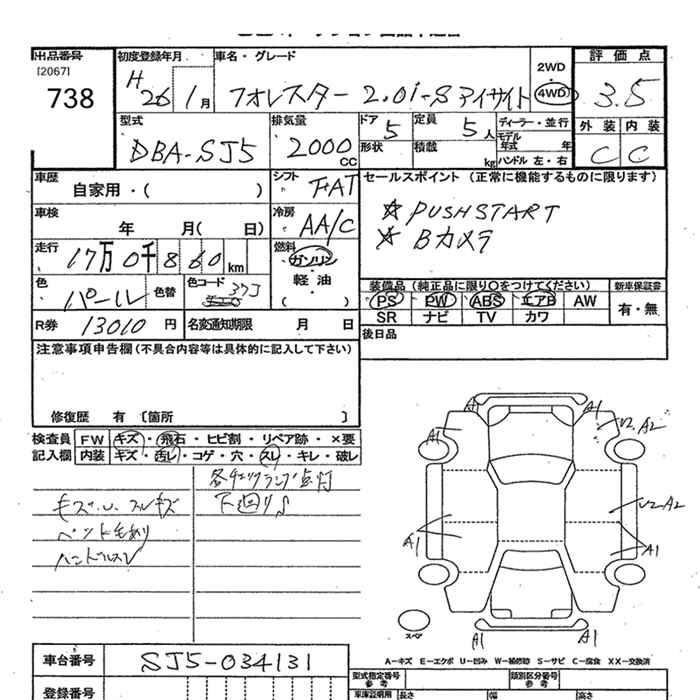 出品番号
[2067]
738
初度登録年月
H 26 1月
車名・グレード
フォレスター 2.0i-S アイサイト
2WD
4WD
評価点
3.5
型式
DBA-SJ5
排気量
2000 CC
ドア 5
形状
定員 5人
積載 kg
ディーラー・並行
モデル年式 年
ハンドル 左・右
外装 内装
C C
車歴
自家用・( )
シフト
FAT
セールスポイント (正常に機能するものに限ります)
☆ PUSHSTART
☆ Bカメラ
車検
年 月( 日)
冷房
AA/C
走行
17万0千860km
燃料
ガソリン
軽油
( )
色
パール
色替
色コード
37J
装備品(純正品に限り○をつけてください)
PS PW ABS エアB AW
SR ナビ TV カワ
新車保証書
有・無
R券 13010 円
名変通知期限 月 日
後日品
注意事項申告欄(不具合内容等は具体的に記入して下さい)
修復歴 有 〔箇所 〕
検査員記入欄
FW キズ・飛石・ヒビ割・リペア跡・×要
内装 キズ・汚レ・コゲ・穴・スレ・キレ・破レ
各チェックランプ点灯
下廻りS
キズ・U. スレキズ
ペット毛あり
ハンドルスレ
A1 A1
A1 U2. A2
U2 A2
A1 A1
スペア
A1 A1
A-キズ E-エクボ U-凹み W-補修跡 S-サビ C-腐食 XX-交換済
車台番号
SJ5-034131
登録番号
型式指定番号
参考
類別区分番号
参考
車庫証明用
長さ 幅 高さ